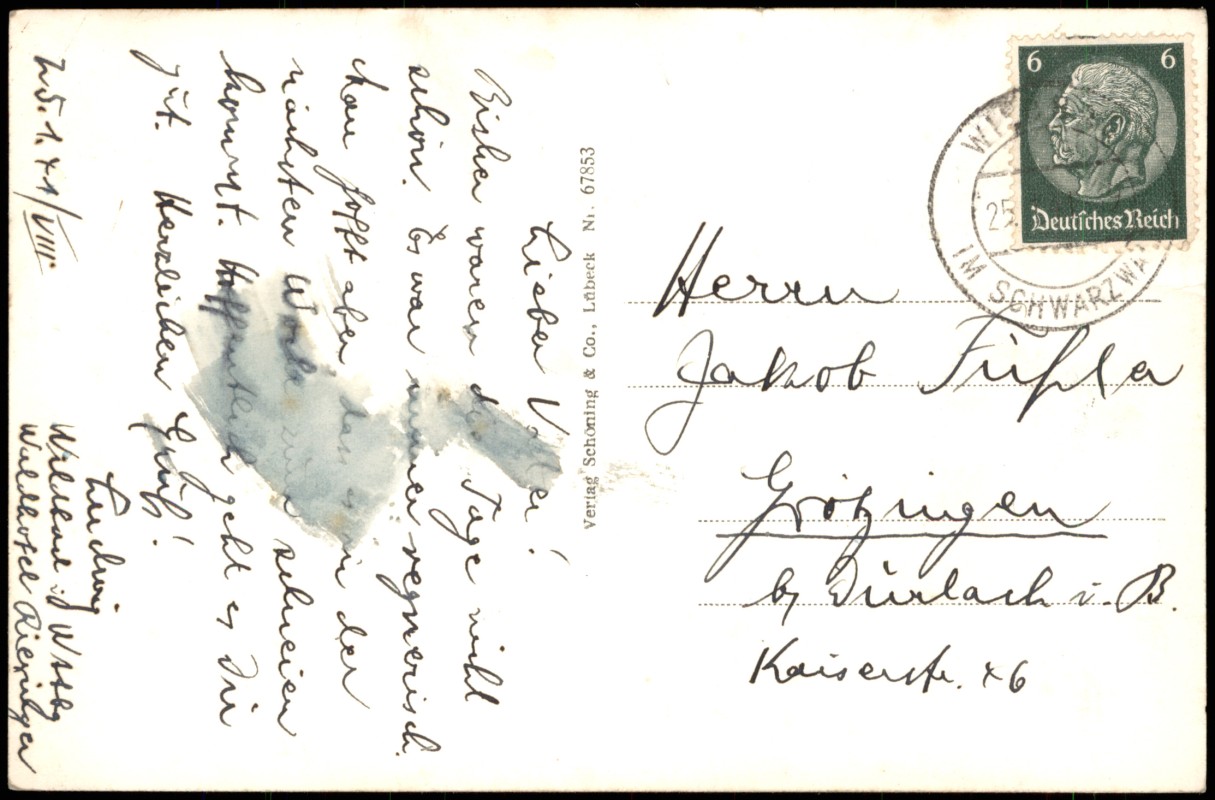 Lieber Vater!
Bisher waren die Tage nicht
schön. Es war immer regnerisch.
Man hofft aber dass es in der
nächsten Woche zum scheinen
kommt. Hoffentlich geht es Dir
gut. Herzlichen Gruß!
Ludwig
Wildbad i. Wttbg
Waldhotel Riexinger
Verlag Schöning & Co., Lübeck Nr. 67853
6 6
Deutsches Reich
25
IM SCHWARZWA
Herrn
Jakob Füßler
Grötzingen
by Durlach i. B.
Kaiserstr. 46